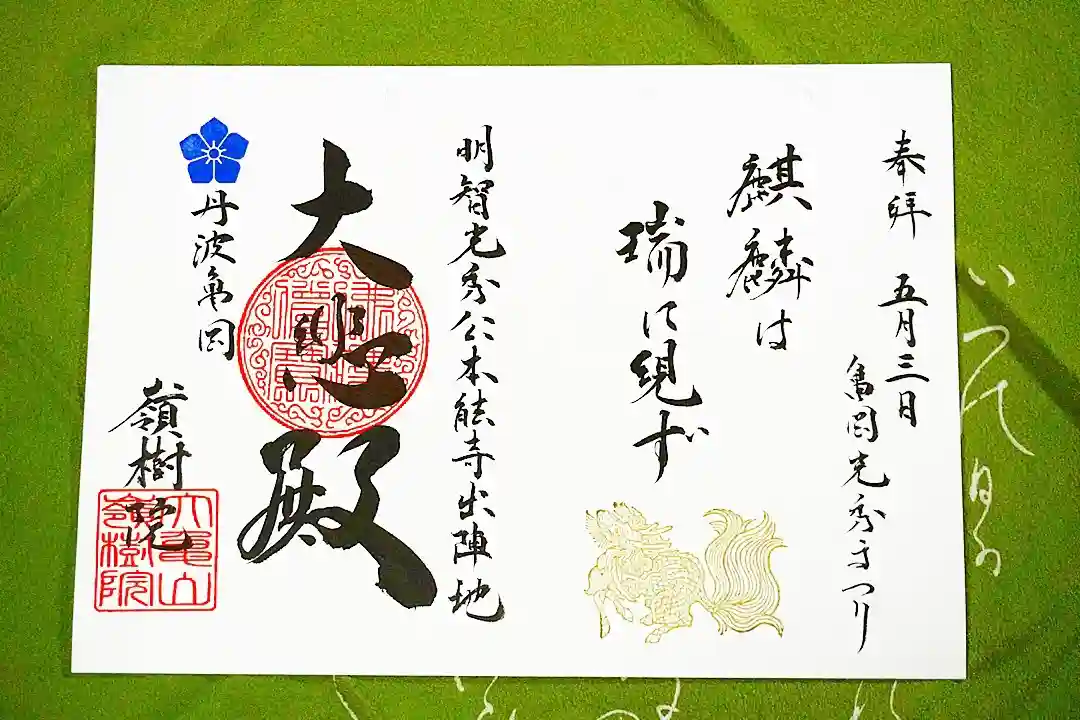 奉拝 五月三日
亀岡光秀まつり
麒麟は
瑞に現ず
明智光秀公本能寺出陣地
大悲殿
丹波亀岡
嶺樹院
大亀山
嶺樹院